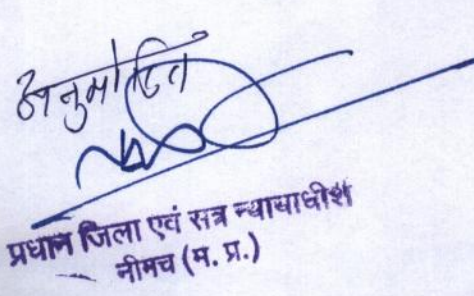 अनुमोदित
प्रधान जिला एवं सत्र न्यायाधीश
नीमच (म. प्र.)